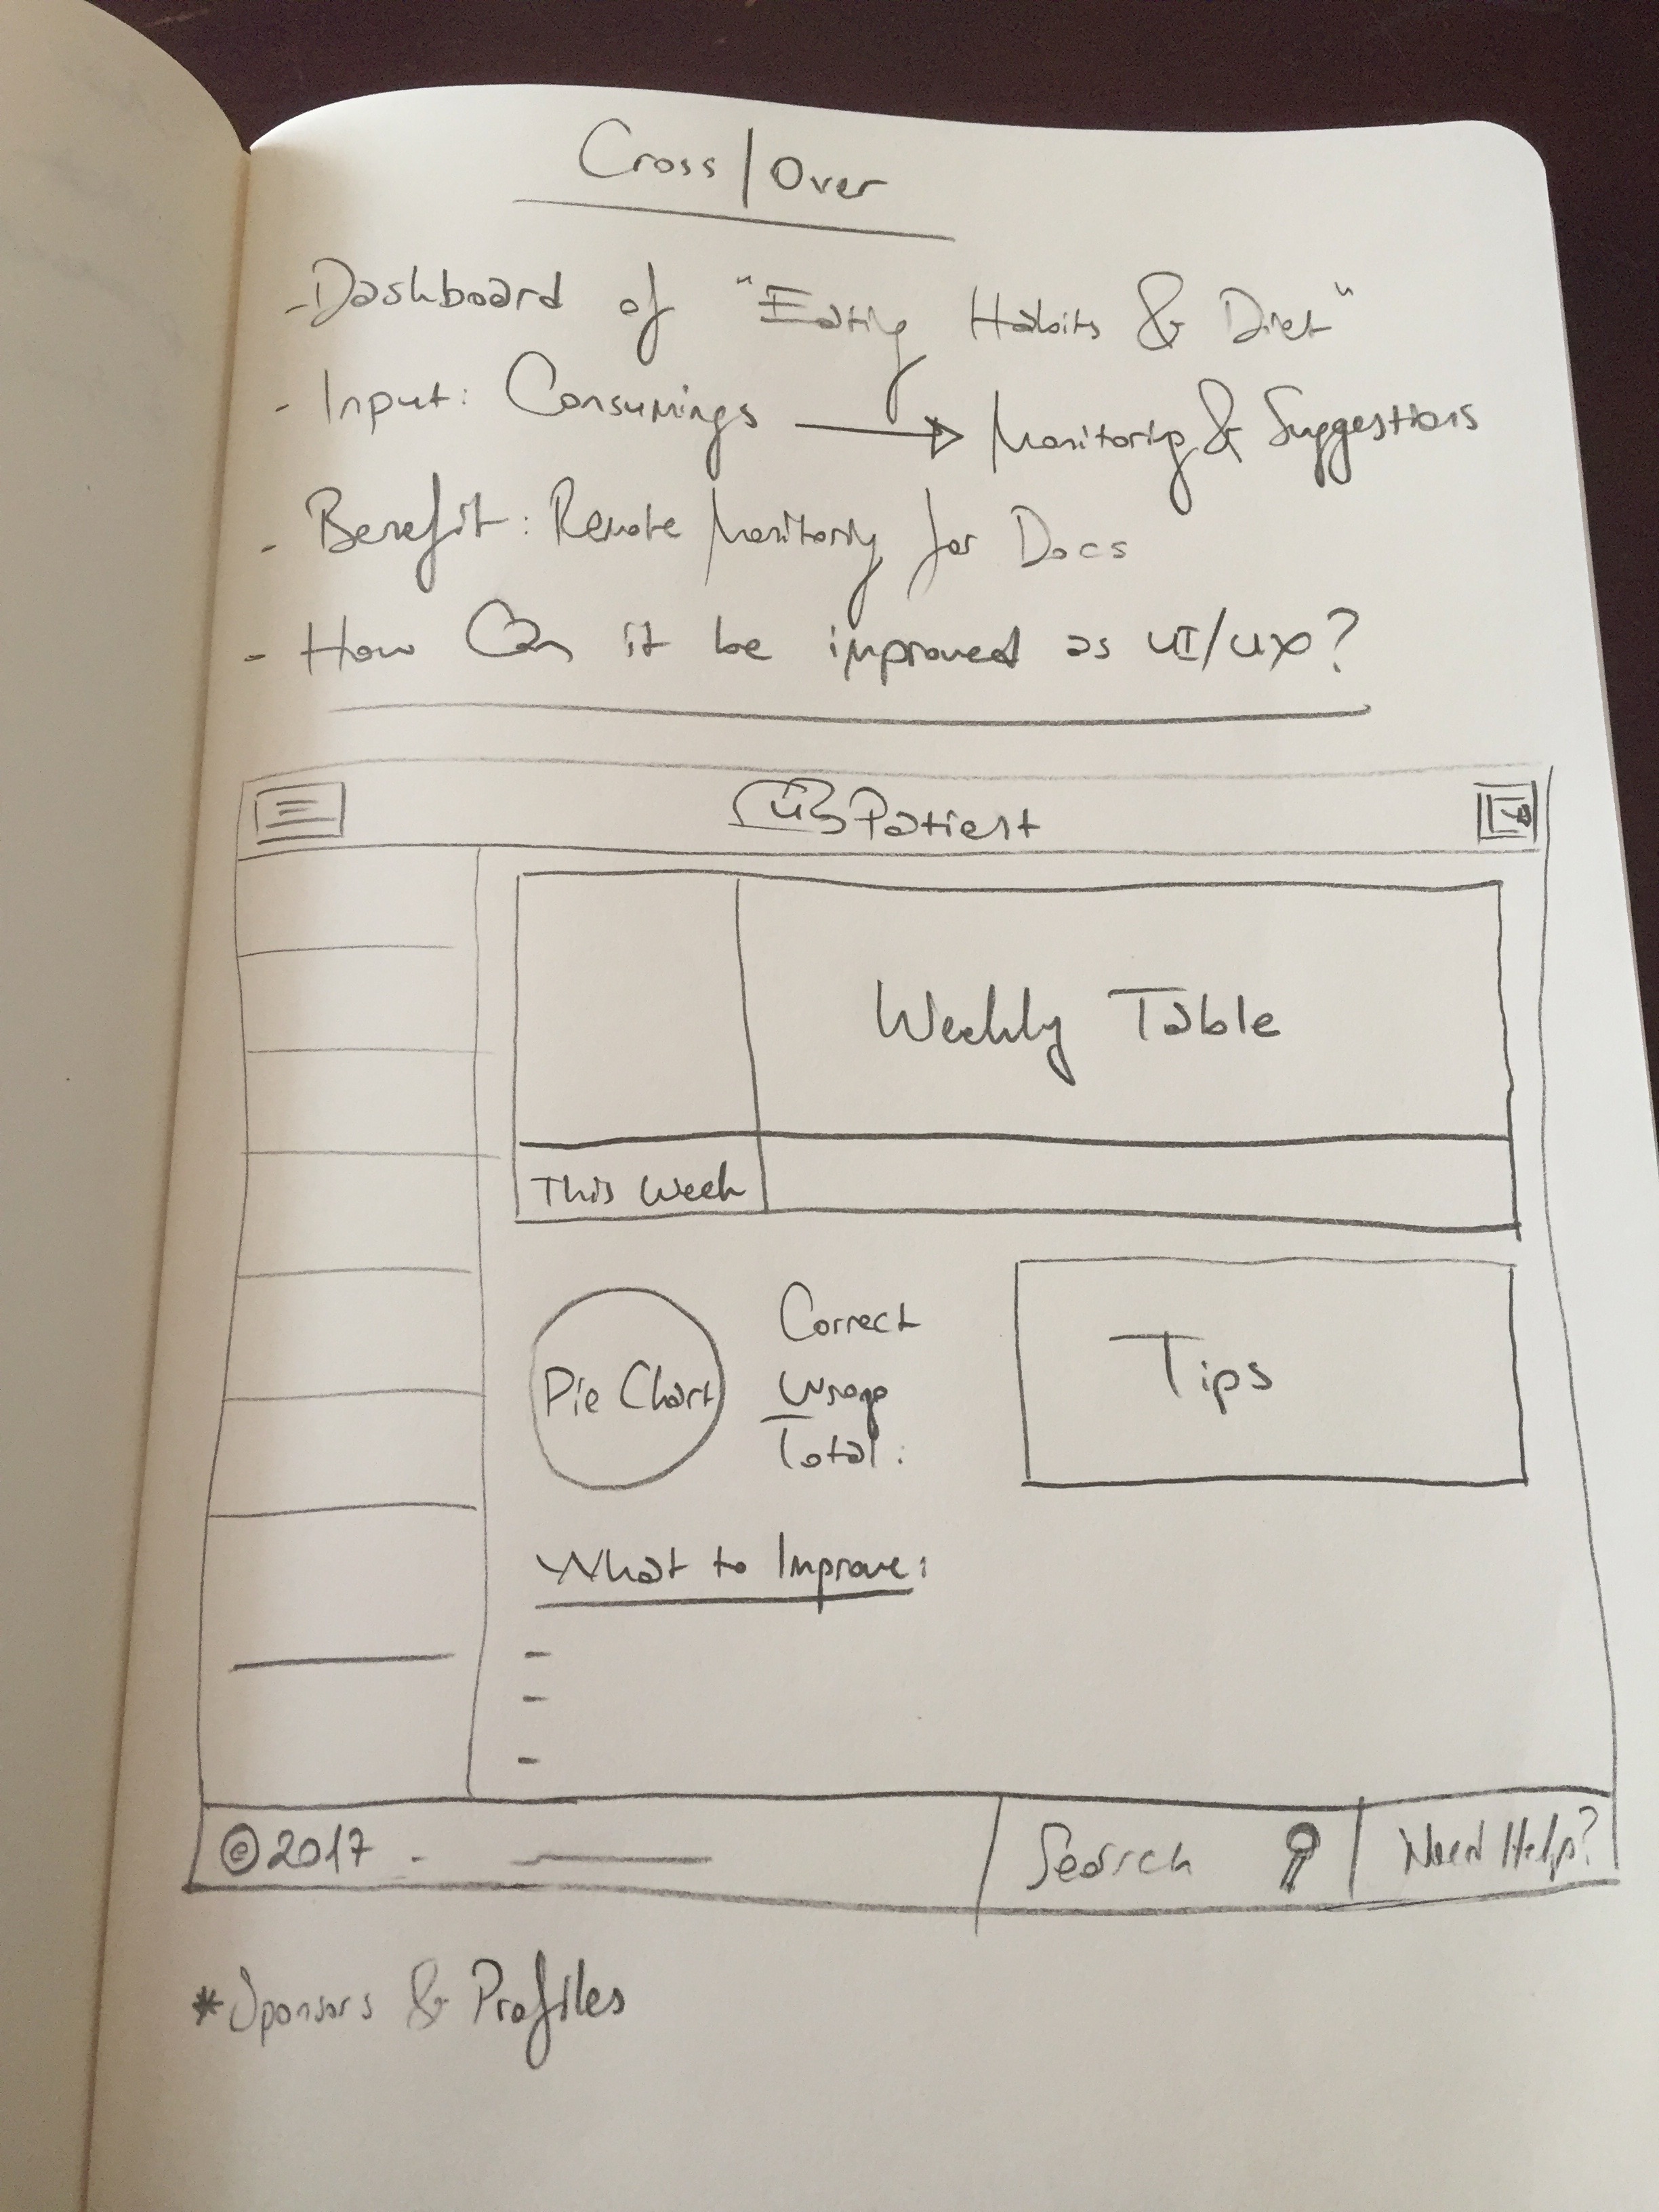 Cross|Over
- Dashboard of "Eating Habits & Diet"
- Input: Consumings → Monitoring & Suggestions
- Benefit: Remote Monitoring for Docs
- How Can it be improved as UI/UX?
Patient
Weekly Table
This Week
Pie Chart
Correct
Wrong
Total:
Tips
What to Improve:
-
-
-
©2017 -
Search
Need Help?
*Sponsors & Profiles